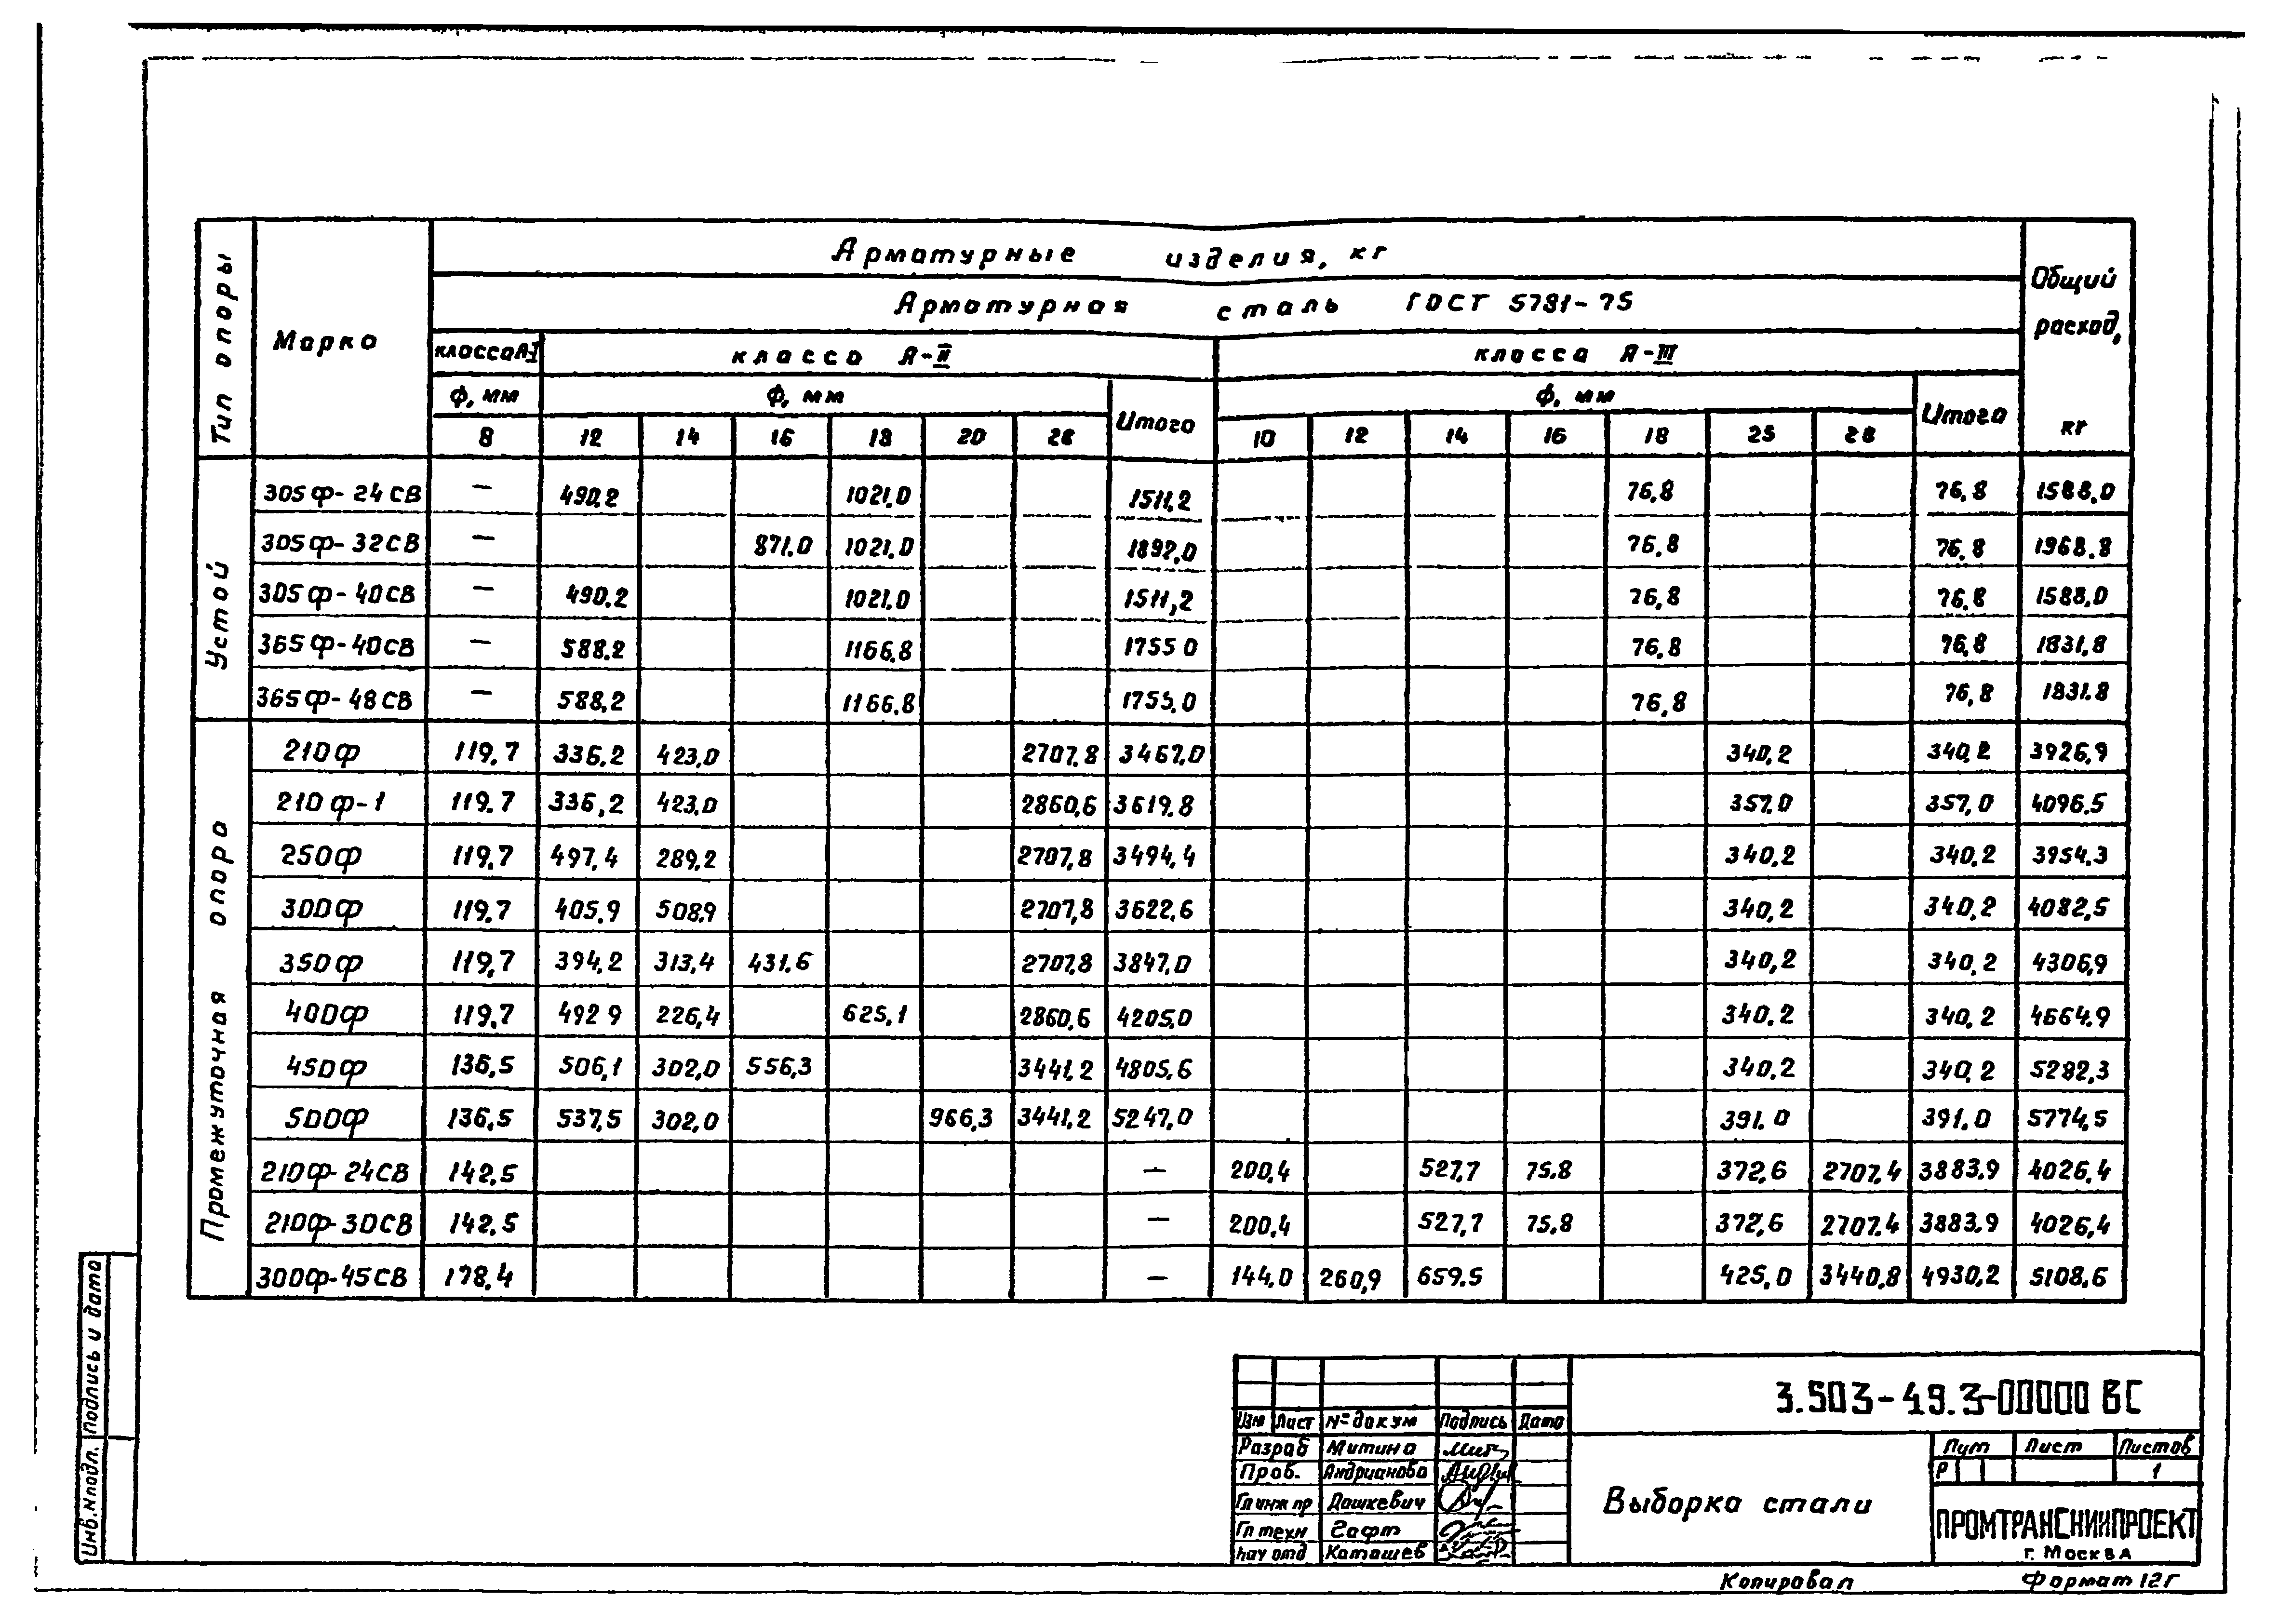 Арматурные изделия, кг
Арматурная сталь ГОСТ 5781-75
Тип опоры
Марка
Общий расход, кг
класса А-I
класса А-II
класса А-III
Ф, мм
Ф, мм
Итого
Ф, мм
Итого
8 12 14 16 18 20 28 10 12 14 16 18 25 28
Устой
305ф-24СВ — 490.2 1021.0 1511,2 76.8 76.8 1588,0
305ф-32СВ — 871.0 1021.0 1892,0 76.8 76.8 1968.8
305ф-40СВ — 490.2 1021.0 1511,2 76.8 76.8 1588,0
365ф-40СВ — 588.2 1166.8 1755 0 76.8 76,8 1831,8
365ф-48СВ — 588.2 1166.8 1755.0 76,8 76,8 1831.8
Промежуточная опора
210ф 119,7 336.2 423,0 2707.8 3467,0 340,2 340,2 3926,9
210ф-1 119.7 336,2 423.0 2860,6 3619.8 357.0 357,0 4096.5
250ф 119.7 497.4 289,2 2707,8 3494,4 340,2 340,2 3954.3
300ф 119.7 405.9 508.9 2707,8 3622,6 340,2 340,2 4082,5
350ф 119,7 394.2 313,4 431.6 2707,8 3847.0 340,2 340,2 4306,9
400ф 119.7 492 9 226,4 625,1 2860,6 4205,0 340.2 340,2 4664,9
450ф 136,5 506,1 302,0 556,3 3441,2 4805,6 340.2 340,2 5282,3
500ф 136,5 537,5 302,0 966,3 3441,2 5247,0 391.0 391.0 5774,5
210ф-24СВ 142.5 — 200,4 527,7 75.8 372,6 2707,4 3883.9 4026,4
210ф-30СВ 142.5 — 200,4 527,7 75.8 372,6 2707.4 3883.9 4026,4
300ф-45СВ 178.4 — 144,0 260,9 659.5 425,0 3440,8 4930,2 5108,6
3.503-49.3-00000 ВС
Изм Лист № докум Подпись Дата
Разраб Митина
Пров. Андрианова
Гл инж пр Дашкевич
Гл техн Гафт
Нач отд Каташев
Выборка стали
Лит Лист Листов
Р 1
ПРОМТРАНСНИИПРОЕКТ
г. Москва
Копировал Формат 12Г
Инв.№подл. Подпись и дата